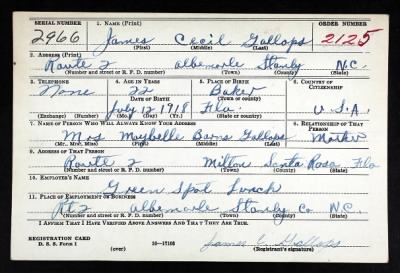 SERIAL NUMBER 1. NAME (Print) ORDER NUMBER
2966 James Cecil Gallops 2125
(First) (Middle) (Last)
2. ADDRESS (Print)
Route 2 albemarle Stanly N.C.
(Number and street or R. F. D. number) (Town) (County) (State)
3. TELEPHONE 4. AGE IN YEARS 5. PLACE OF BIRTH 6. COUNTRY OF CITIZENSHIP
None 22 Baker
DATE OF BIRTH (Town or county)
July 12 1918 Fla. U.S.A.
(Exchange) (No.) (Mo.) (Day) (Yr.) (State or country)
7. NAME OF PERSON WHO WILL ALWAYS KNOW YOUR ADDRESS 8. RELATIONSHIP OF THAT PERSON
Mrs Maybelle Barrs Gallops Mother
(Mr., Mrs., Miss) (First) (Middle) (Last)
9. ADDRESS OF THAT PERSON
Route 2 Milton Santa Rosa Fla
(Number and street or R. F. D. number) (Town) (County) (State)
10. EMPLOYER'S NAME
Green Spot Lunch
11. PLACE OF EMPLOYMENT OR BUSINESS
Rt 2 albemarle Stanly Co N.C.
(Number and street or R. F. D. number) (Town) (County) (State)
I AFFIRM THAT I HAVE VERIFIED ABOVE ANSWERS AND THAT THEY ARE TRUE.
REGISTRATION CARD
D. S. S. Form 1 (over) 16—17105 James C Gallops
(Registrant's signature)